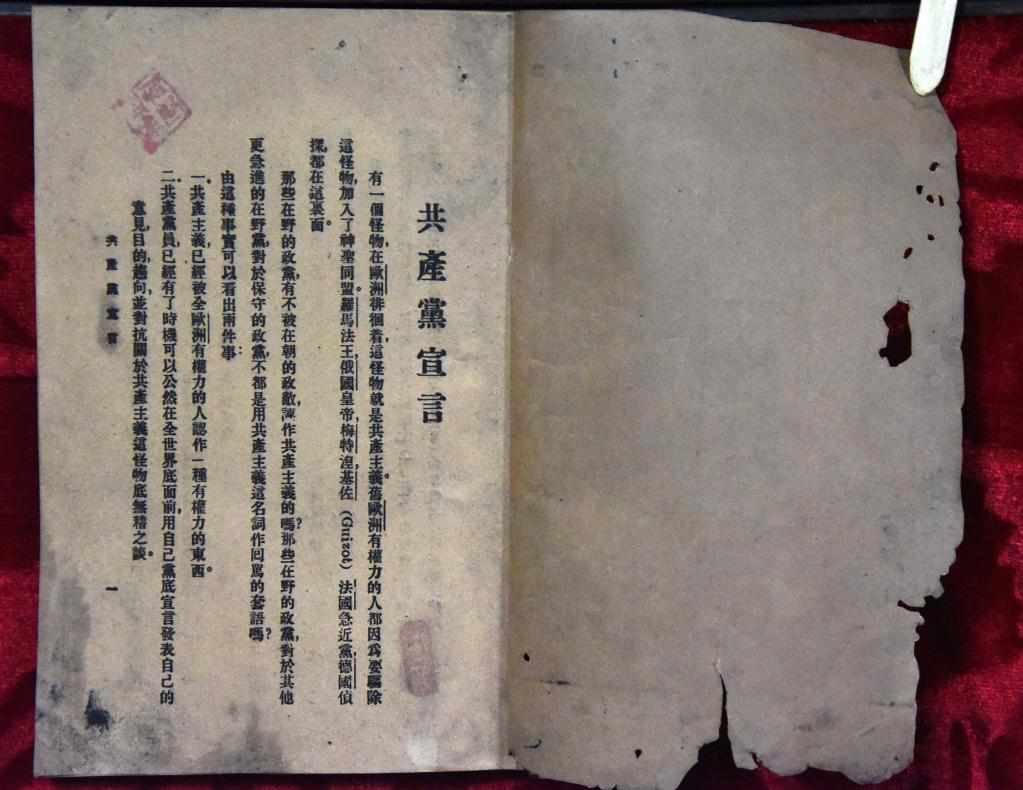 共產黨宣言
有一個怪物，在歐洲徘徊着，這怪物就是共產主義。舊歐洲有權力的人都因爲要驅除
這怪物，加入了神聖同盟。羅馬法王，俄國皇帝，梅特湼，基佐（Guizot），法國急近黨，德國偵
探，都在這裏面。
那些在野的政黨，有不被在朝的政敵，誣作共產主義的嗎？那些在野的政黨，對於其他
更急進的在野黨，對於保守的政黨，不都是用共產主義這名詞作回罵的套語嗎？
由這種事實可以看出兩件事：
一、共產主義，已經被全歐洲有權力的人認作一種有權力的東西。
二、共產黨員，已經有了時機可以公然在全世界底面前，用自己黨底宣言發表自己的
意見，目的，趨向，並對抗關於共產主義這怪物底無稽之談。
共產黨宣言
一